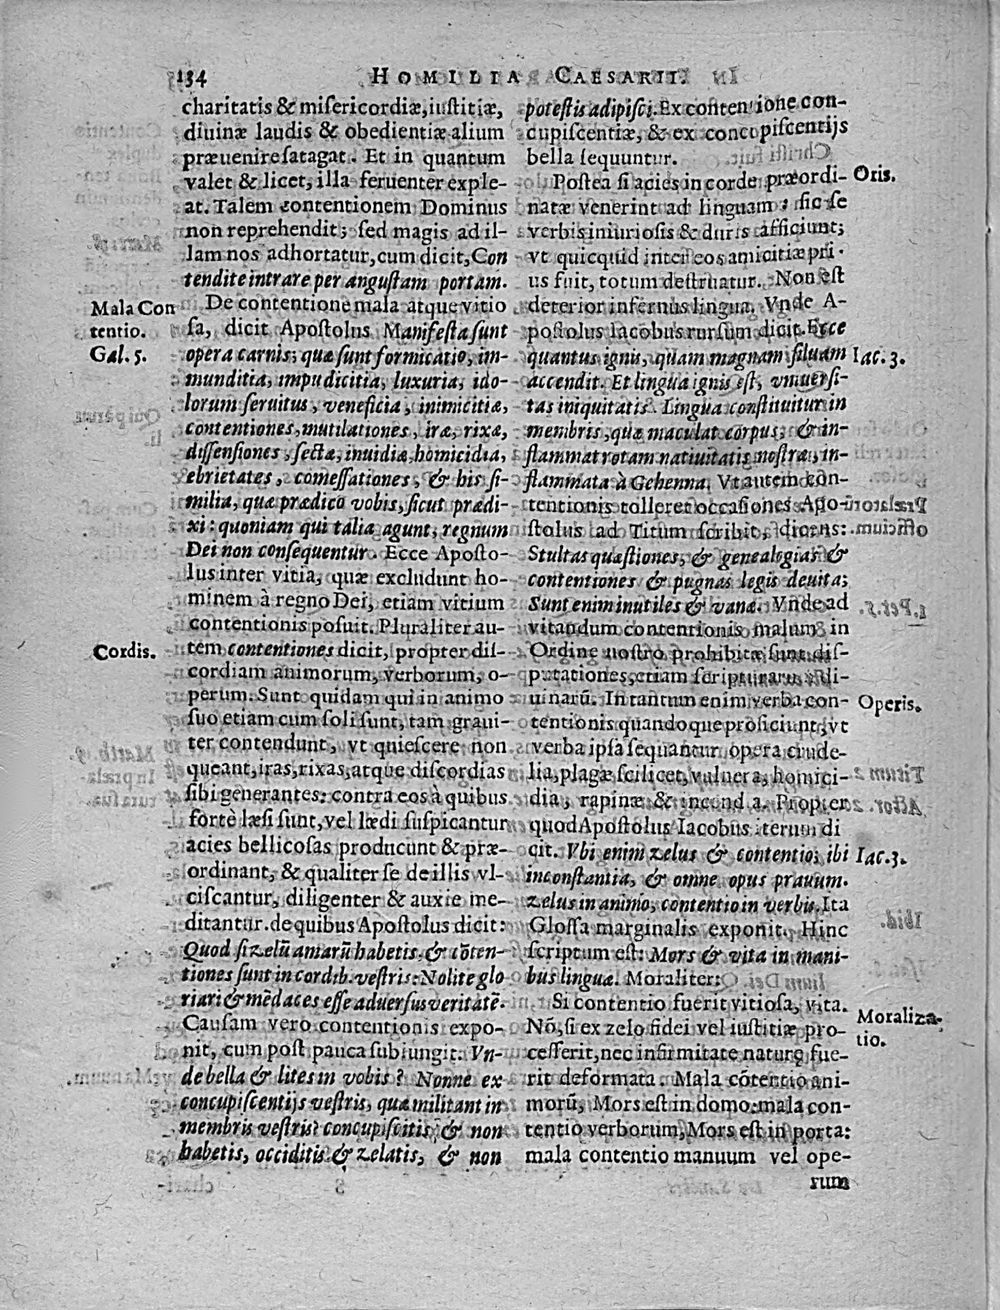 134
HOMILIA CAESARII.
charitatis & misericordiæ, iustitiæ,
diuinæ laudis & obedientiæ alium
præuenire satagat. Et in quantum
valet & licet, illa feruenter exple-
at. Talem contentionem Dominus
non reprehendit; sed magis ad il-
lam nos adhortatur, cum dicit, Con
tendite intrare per angustam portam.
Mala Con
tentio.
Gal. 5.
De contentione mala atque vitio
sa, dicit Apostolus Manifesta sunt
opera carnis; quæ sunt fornicatio, im-
munditia, impudicitia, luxuria, ido-
lorum seruitus, veneficia, inimicitiæ,
contentiones, mutilationes, iræ, rixæ,
dissensiones, sectæ, inuidiæ, homicidia,
ebrietates, comessationes, & his si-
milia, quæ prædico vobis, sicut prædi-
xi: quoniam qui talia agunt, regnum
Dei non consequentur. Ecce Aposto-
lus inter vitia, quæ excludunt ho-
minem à regno Dei, etiam vitium
contentionis posuit. Pluraliter au-
Cordis.
tem contentiones dicit, propter dis-
cordiam animorum, verborum, o-
perum. Sunt quidam qui in animo
suo etiam cum soli sunt, tam graui-
ter contendunt, vt quiescere non
queant, iras, rixas, atque discordias
sibi generantes: contra eos à quibus
fortè læsi sunt, vel lædi suspicantur
acies bellicosas producunt & præ-
ordinant, & qualiter se de illis vl-
ciscantur, diligenter & auxie me-
ditantur. de quibus Apostolus dicit:
Quod si zelū amarū habetis, & cōten-
tiones sunt in cordib. vestris: Nolite glo
riari & mēdaces esse aduersus veritatē.
Causam vero contentionis expo-
nit, cum post pauca subiungit. Vn-
de bella & lites in vobis? Nonne ex
concupiscentijs vestris, quæ militant in
membris vestris? concupiscitis, & non
habetis, occiditis & zelatis, & non
potestis adipisci. Ex contentione con-
cupiscentiæ, & ex concupiscentijs
bella sequuntur.
Oris.
Postea si acies in corde præordi-
natæ venerint ad linguam: sic se
verbis iniuriosis & duris afficiunt;
vt quicquid inter eos amicitiæ pri-
us fuit, totum destruatur. Non est
deterior infernus lingua. Vnde A-
postolus Iacobus rursum dicit. Ecce
quantus ignis, quam magnam siluam
Iac. 3.
accendit. Et lingua ignis est, vniuersi-
tas iniquitatis. Lingua constituitur in
membris, quæ maculat corpus, & in-
flammat rotam natiuitatis nostræ, in-
flammata à Gehenna. Vt autem con-
tentionis tolleret occasiones Apo-
stolus ad Titum scribit, dicens:
Stultas quæstiones, & genealogias &
contentiones & pugnas legis deuita;
Sunt enim inutiles & vanæ. Vnde ad
vitandum contentionis malum in
Ordine nostro prohibitæ sunt dis-
putationes, etiam scripturarū di-
uinarū. In tantum enim verba con-
Operis.
tentionis quandoque proficiunt, vt
verba ipsa sequantur opera crude-
lia, plagæ scilicet, vulnera, homici-
dia, rapinæ & incend a. Propter
quod Apostolus Iacobus iterum di
cit. Vbi enim zelus & contentio; ibi
Iac. 3.
inconstantia, & omne opus prauum.
zelus in animo, contentio in verbis. Ita
Glossa marginalis exponit. Hinc
scriptum est: Mors & vita in mani-
bus linguæ. Moraliter:
Moraliza-
tio.
Si contentio fuerit vitiosa, vita.
Nō, si ex zelo fidei vel iustitiæ pro-
cesserit, nec infirmitate naturę fue-
rit deformata. Mala cōtentio ani-
morū, Mors est in domo: mala con-
tentio verborum, Mors est in porta:
mala contentio manuum vel ope-
rum